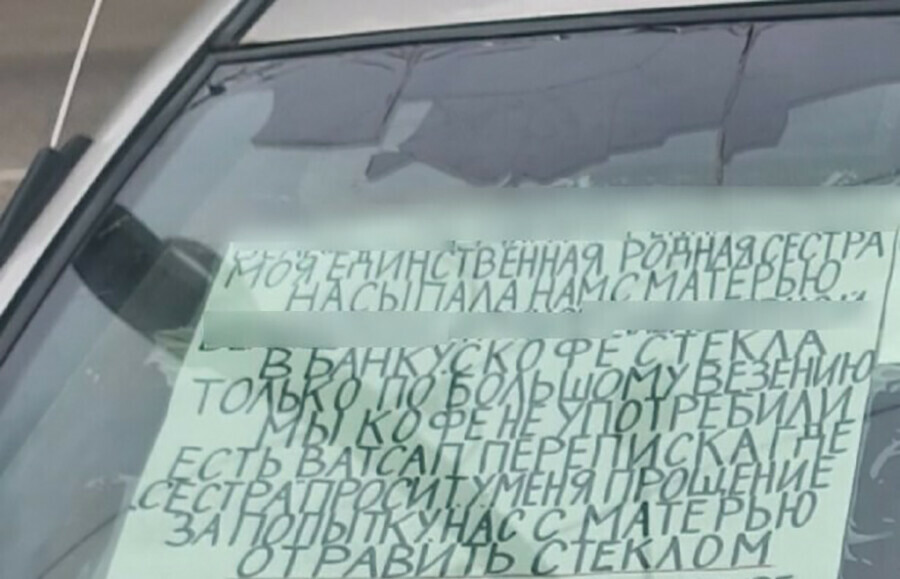 МОЯ ЕДИНСТВЕННАЯ РОДНАЯ СЕСТРА
НАСЫПАЛА НАМ С МАТЕРЬЮ
В БАНКУ С КОФЕ СТЕКЛА
ТОЛЬКО ПО БОЛЬШОМУ ВЕЗЕНИЮ
МЫ КОФЕ НЕ УПОТРЕБИЛИ
ЕСТЬ ВАТСАП ПЕРЕПИСКА ГДЕ
СЕСТРА ПРОСИТ У МЕНЯ ПРОЩЕНИЕ
ЗА ПОПЫТКУ НАС С МАТЕРЬЮ
ОТРАВИТЬ СТЕКЛОМ